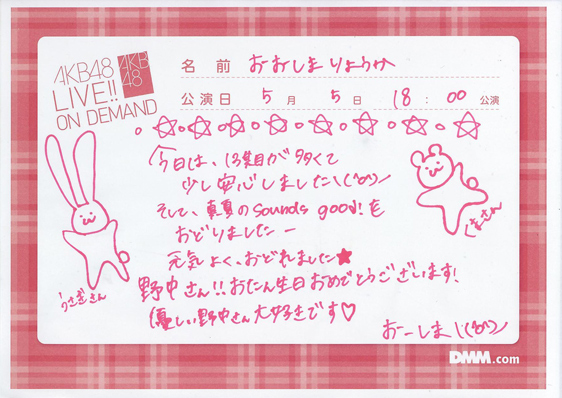 AKB48
LIVE!!
ON DEMAND
AKB
48
名前 おおしまりょうか
公演日 5月 5日 18:00 公演
今日は、13期が多くて
少し安心しました\(^o^)/
そして、真夏のSounds good!を
おどりましたー
元気よく、おどれました★
野中さん!!おたん生日おめでとうございます!
優しい野中さん大好きです♡
おーしま\(^o^)/
うさぎさん
くまさん
DMM.com